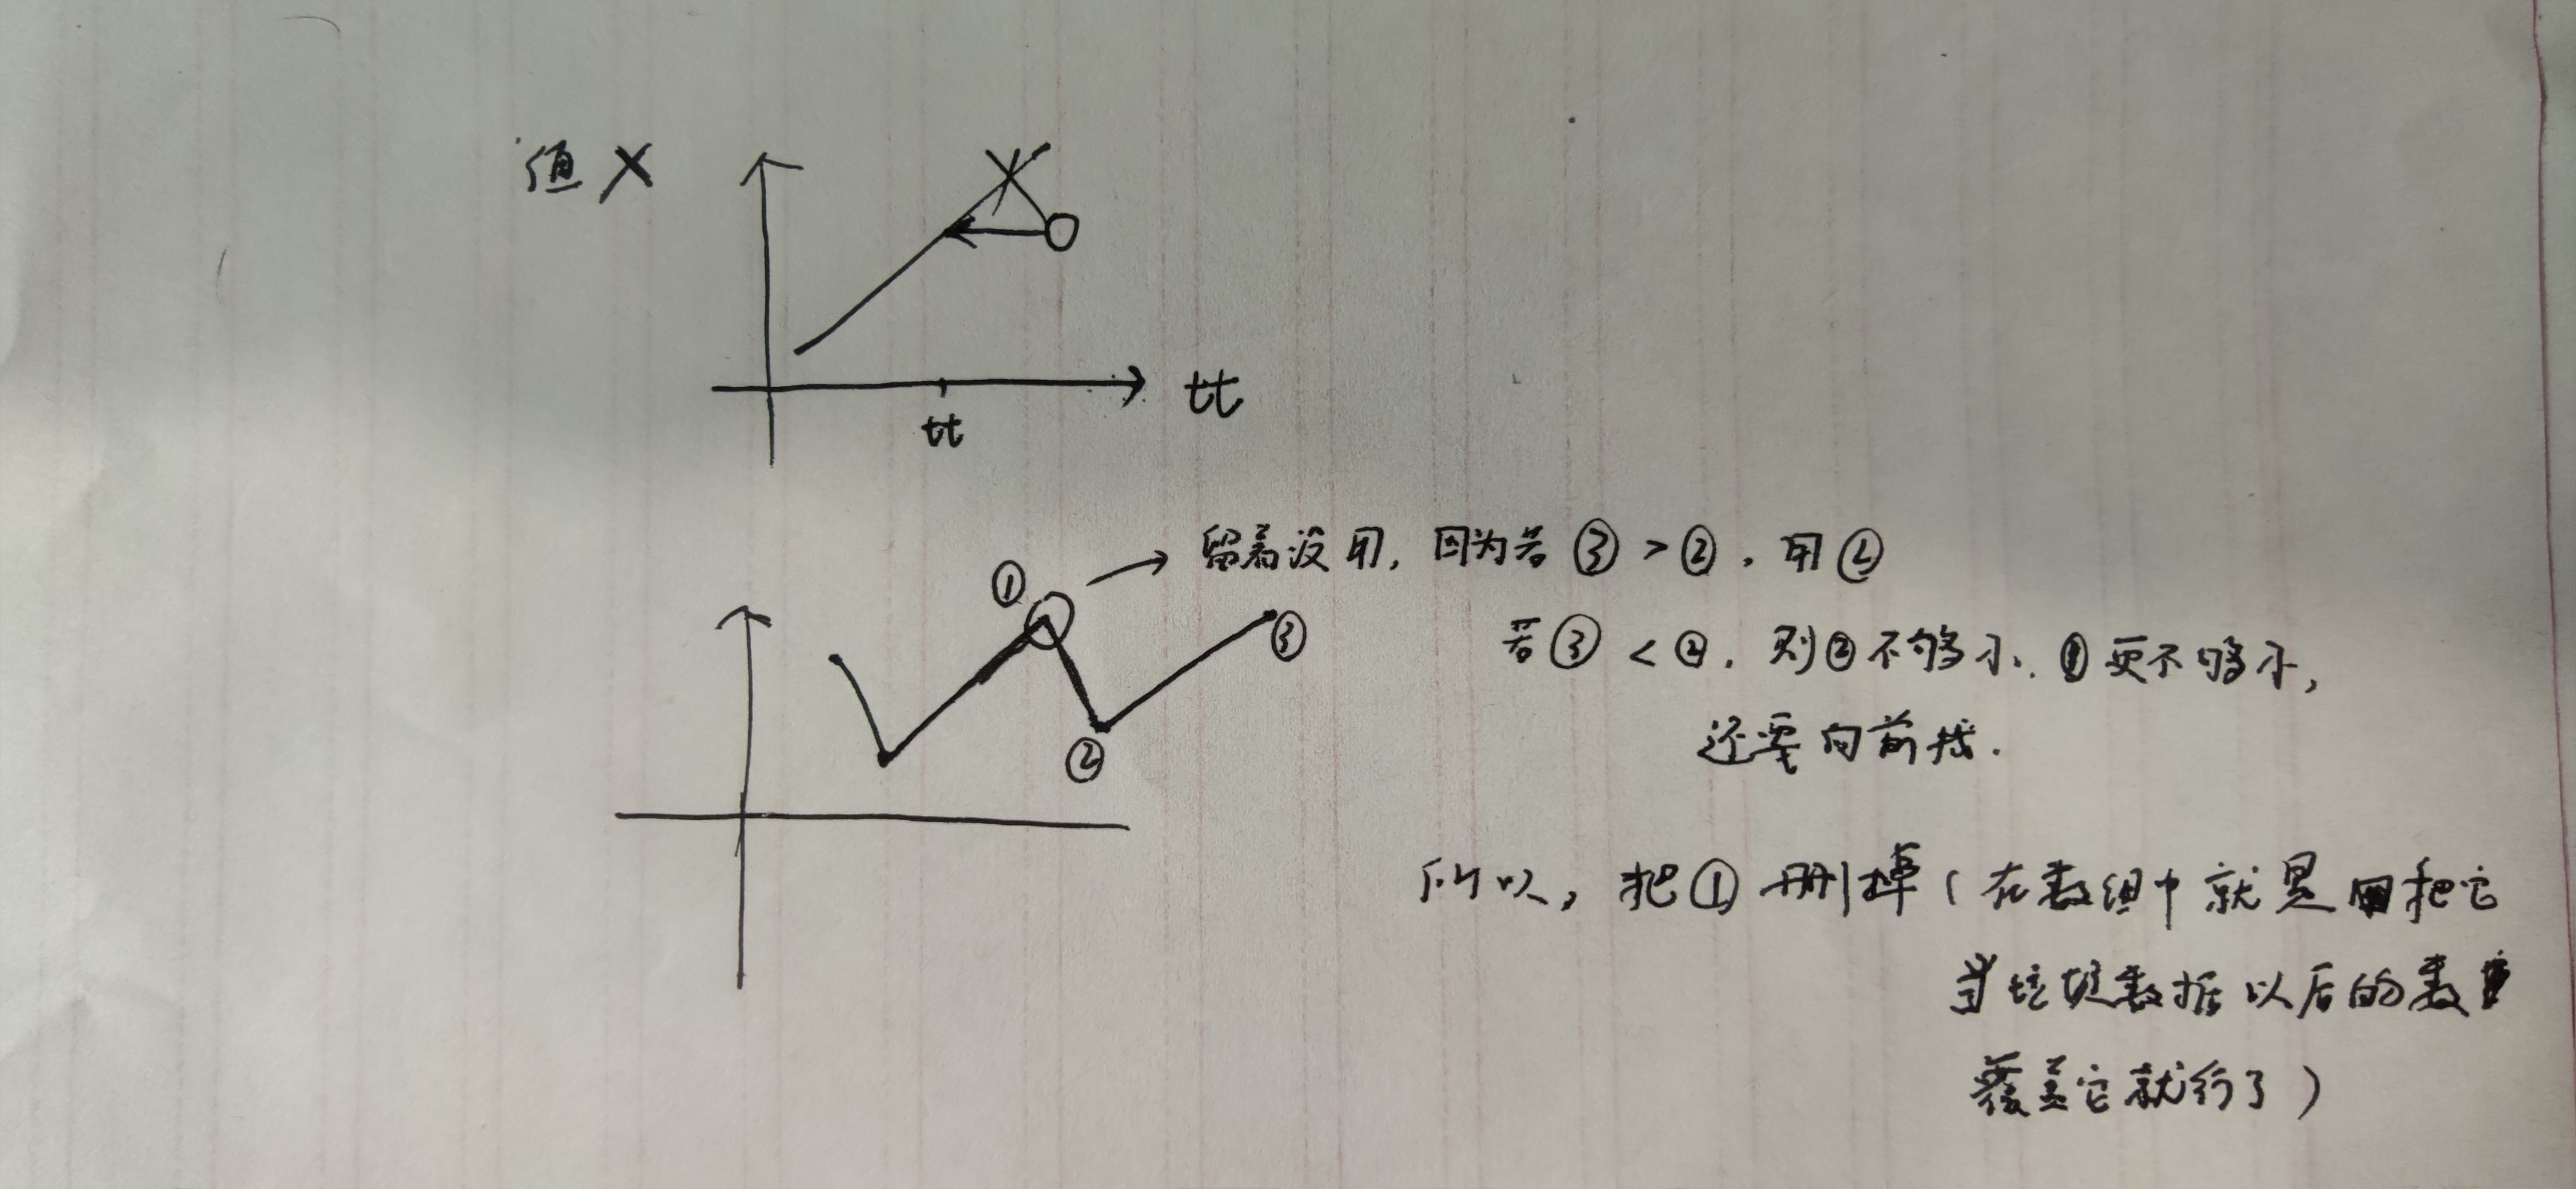 值 X
tt
tt
留着没用, 因为若 ③ > ②, 用 ②
①
若 ③ < ②, 则 ② 不够小, ① 更不够小,
③
还要向前找.
②
所以, 把 ① 删掉 (在数组中就是把它
当垃圾数据以后的数
覆盖它就行了)